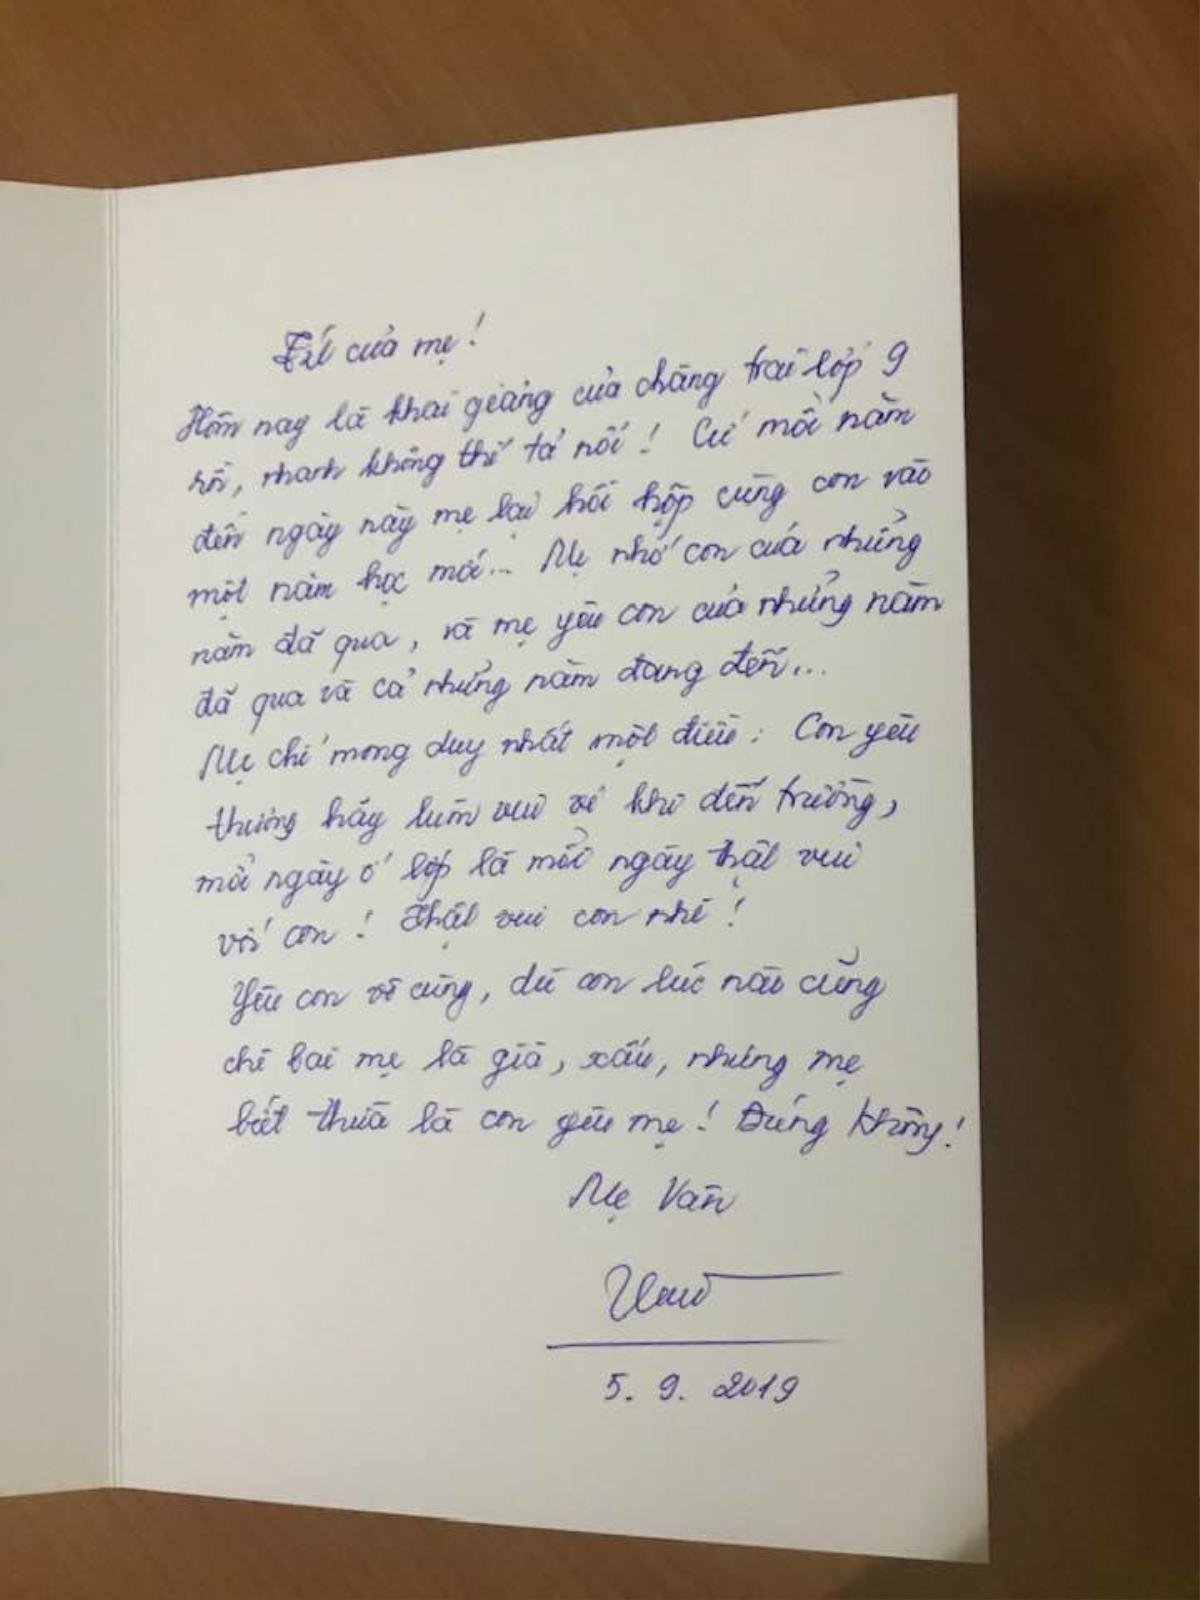 Tít của mẹ!
Hôm nay là khai giảng của chàng trai lớp 9
rồi, nhanh không thể tả nổi! Cứ mỗi năm
đến ngày này mẹ lại hồi hộp cùng con vào
một năm học mới... Mẹ nhớ con của những
năm đã qua, và mẹ yêu con của những năm
đã qua và cả những năm đang đến...
Mẹ chỉ mong duy nhất một điều: Con yêu
thương hãy luôn vui vẻ khi đến trường,
mỗi ngày ở lớp là mỗi ngày thật vui
với con! Thật vui con nhé!
Yêu con vô cùng, dù con lúc nào cũng
chê bai mẹ là già, xấu, nhưng mẹ
biết thừa là con yêu mẹ! Đúng không!
Mẹ Vân
5. 9. 2019